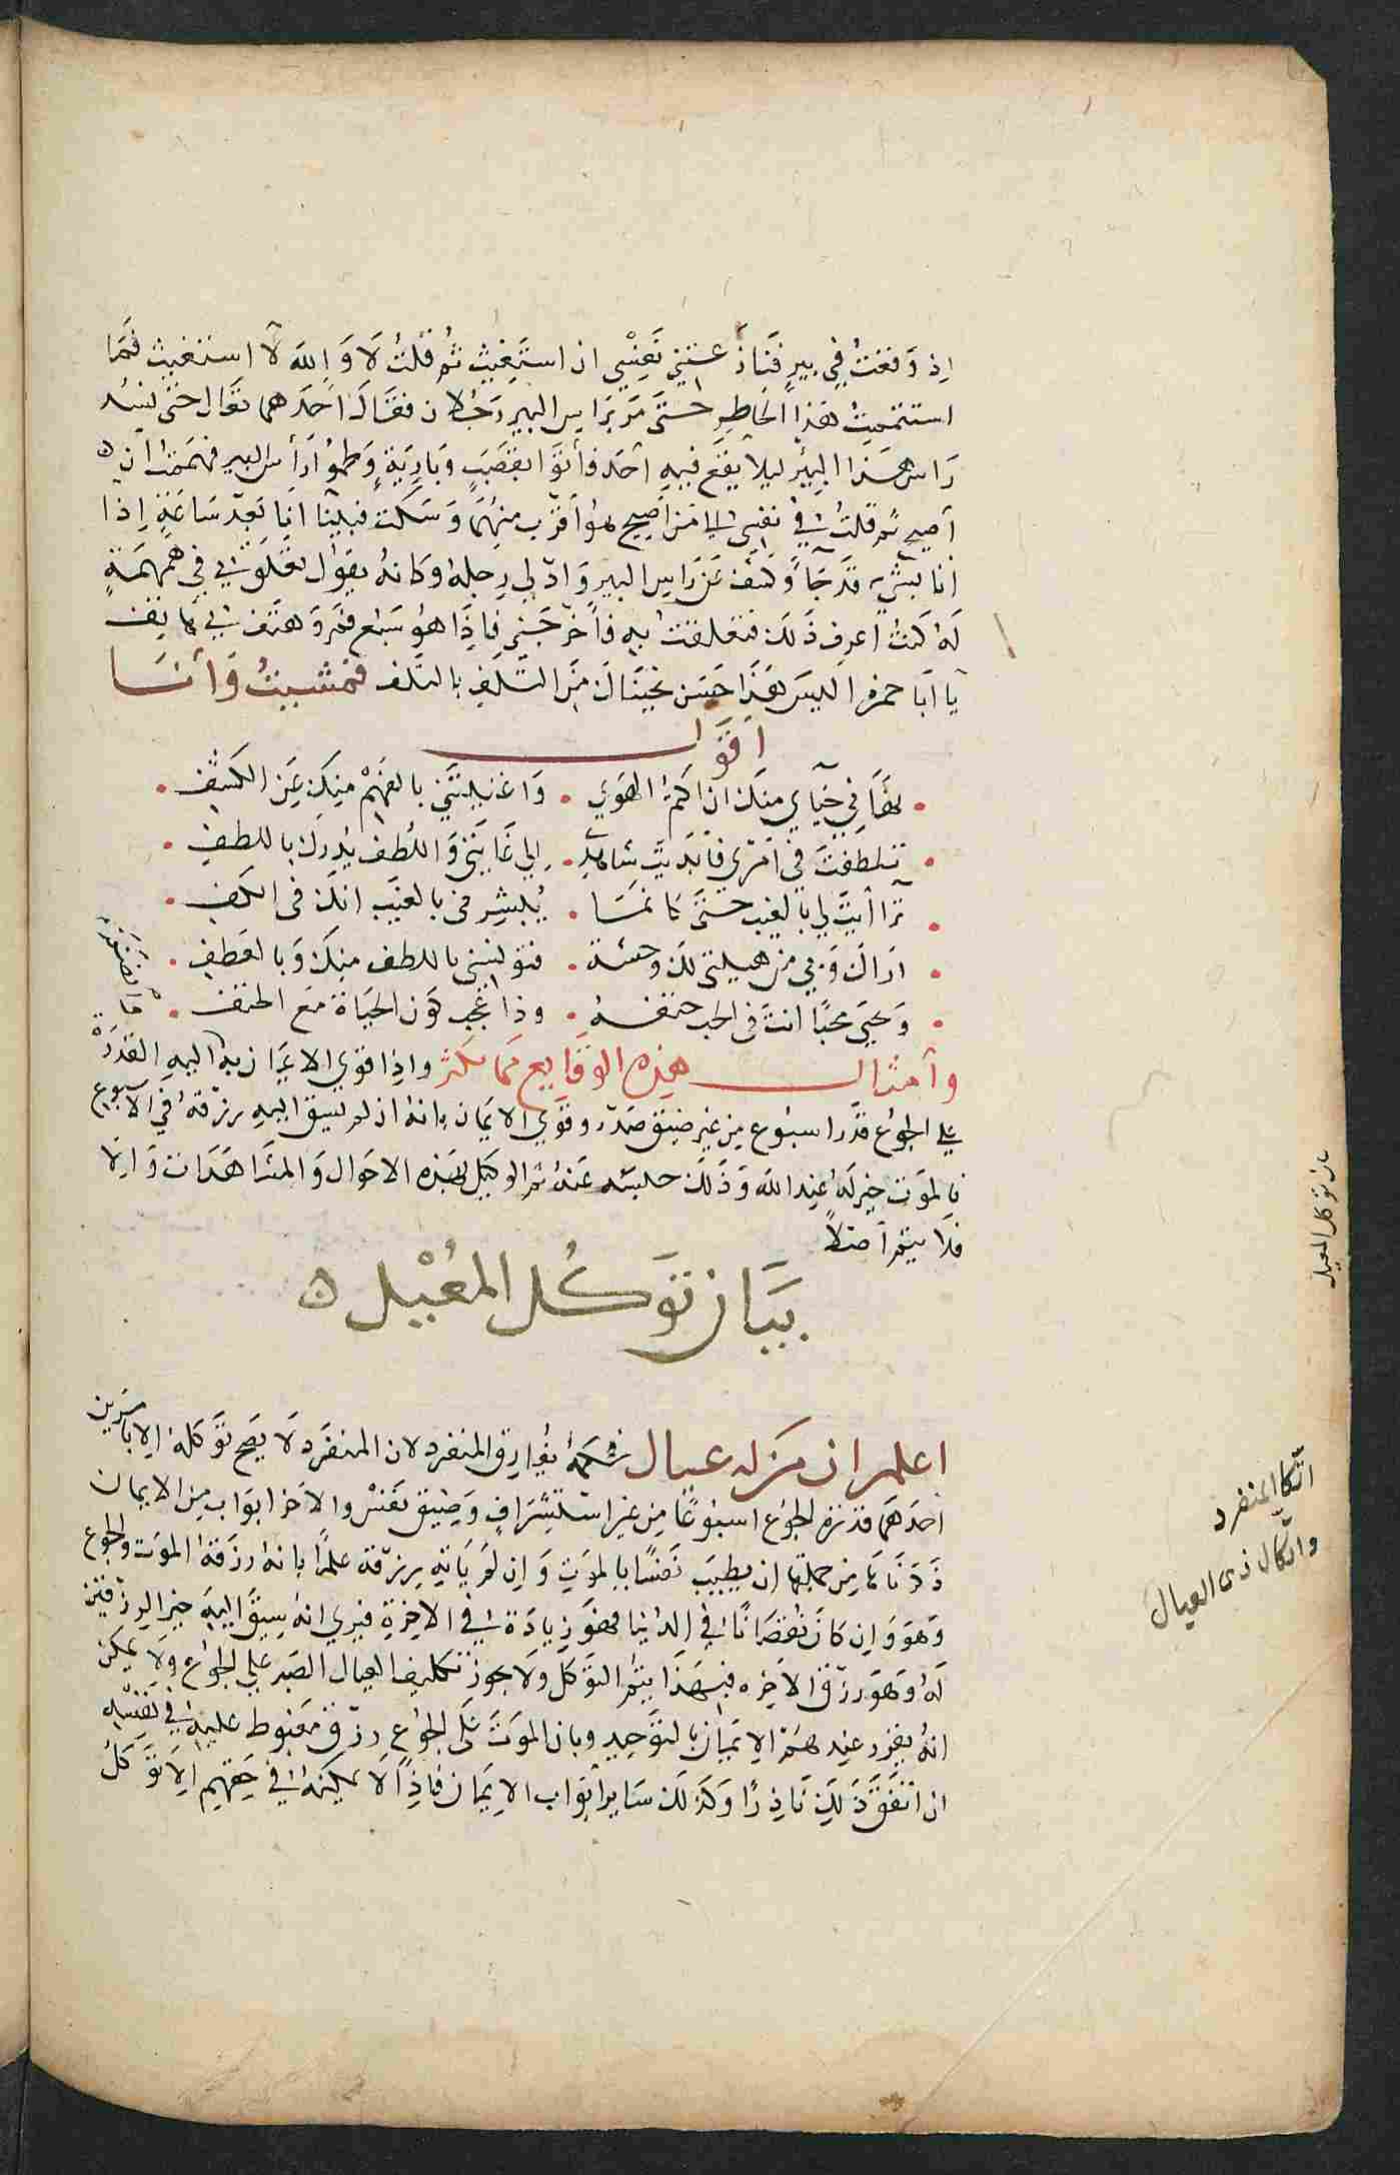 اذ وقعت في بير فنازعتني نفسي ان استغيث ثم قلت لا والله لا استغيث فما
استتممت هذا الخاطر حتى مر براس البير رجلان فقال احدهما تعال حتى نسد
راس هذا البير ليلا يقع فيه احد فاتوا بقصب وبارية وطموا راس البير فهممت ان
اصيح ثم قلت في نفسي الى من اصيح هو اقرب منهما وسكت فبينا انا بعد ساعة اذا
انا بشيء قد جا وكشف عن راس البير وادلى رجله وكانه يقول تعلق بي في همهمة
له كنت اعرف ذلك فتعلقت به فاخرجني فاذا هو سبع فمر وهتف بي هاتف
يا ابا حمزه اليس هذا احسن نجيناك من التلف بالتلف فمشيت وانا
اقول
نهاني حياي منك ان اكتم الهوى . واغنيتني بالفهم منك عن الكشف .
تلطفت في امري فابديت شاهدي . الى غايبي واللطف يدرك باللطف .
تراايت لي بالغيب حتى كانما . يبشرني بالغيب انك في الكف .
اراك وبي من هيبتي لك وحشة . فتونسني باللطف منك وبالعطف .
وتحيي محبا انت في الحب حتفه . وذا عجب كون الحياة مع الحتف .
وامثال هذه الوقايع مما يكثر واذا قوي الايمان به اليه القدرة
على الجوع قدر اسبوع من غير ضيق صدر وقوي الايمان بانه ان لم يسق اليه رزقه في الاسبوع
فالموت خير له عند الله وذلك حبسه عنه ثم التوكل بهذه الاحوال والمشاهدات والا
فلا يتم اصلا
بيان توكل المعيل
اعلم ان من له عيال فحكمه يفارق المنفرد لان المنفرد لا يصح توكله الا بامرين
احدهما قدرته الجوع اسبوعا من غير استشراف وضيق نفس والاخر ابواب من الايمان
ذكرناها من جملتها ان يطيب نفسا بالموت وان لم ياته برزقه علما بانه رزقه الموت والجوع
وهو وان كان نقصانا في الدنيا فهو زيادة في الاخرة فيرى انه سيق اليه خير الرزقين
له وهو رزق الاخره فبهذا يتم التوكل ولا يجوز تكليف العيال الصبر على الجوع ولا يمكن
انه يقرر عندهم الايمان بالتوحيد وبان الموت على الجوع رزق مغبوط عليه في نفسه
ان اتفق ذلك نادرا وكذلك ساير ابواب الايمان فاذا لا يمكنه في حقهم الا توكل
بيان توكل المعيل
اتكال المنفرد
واتكال ذي العيال